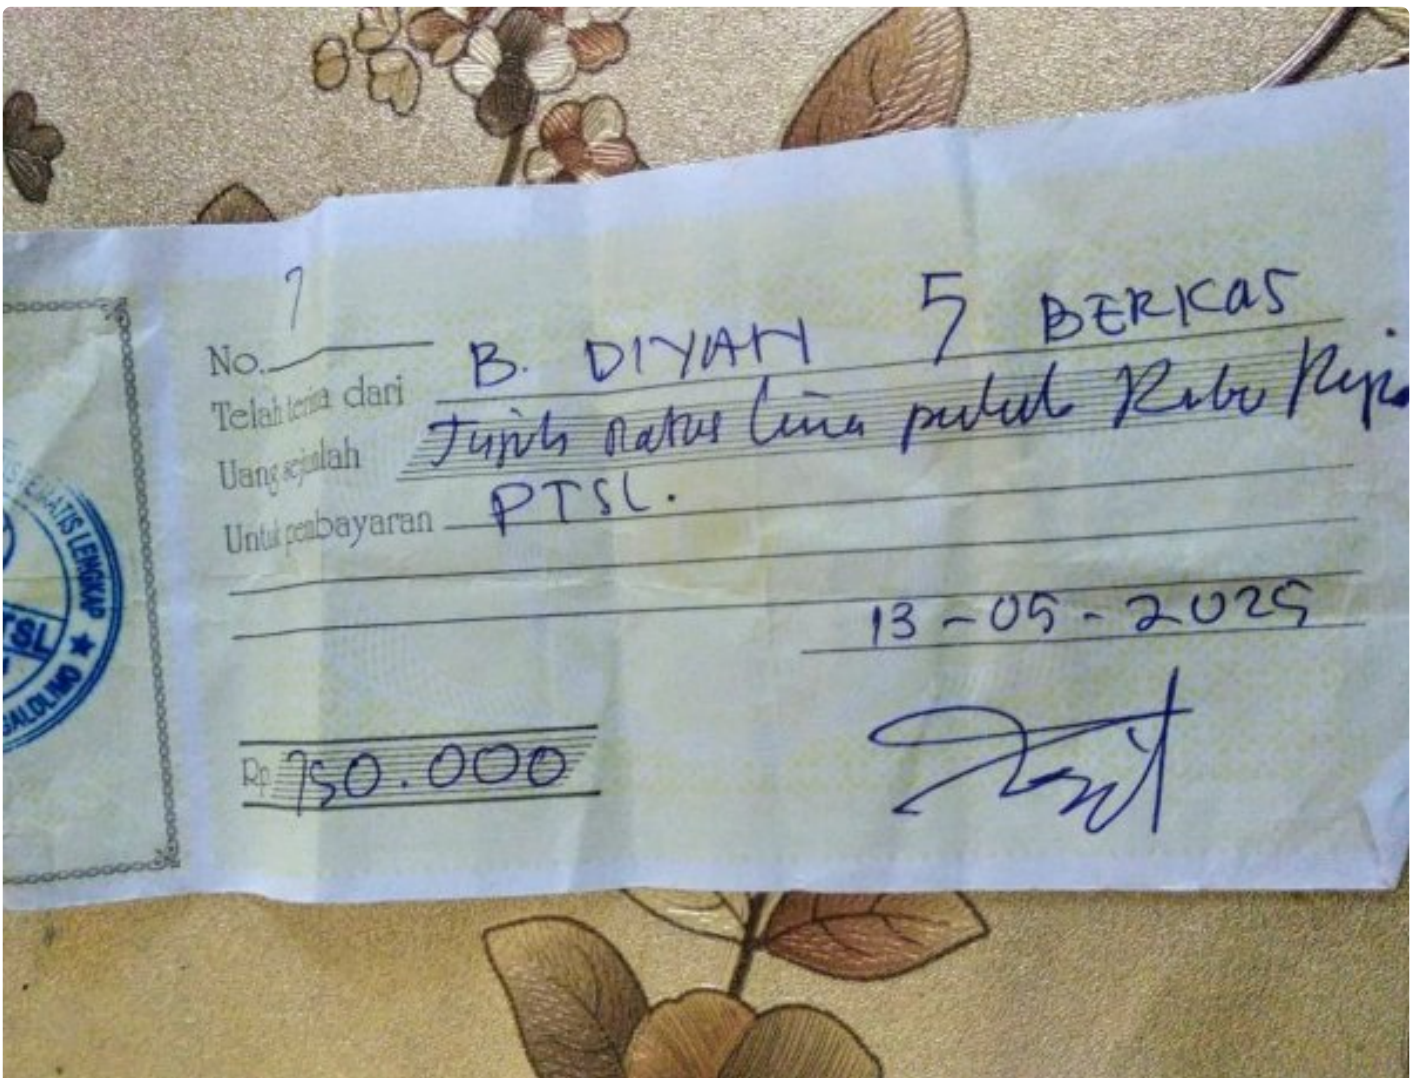 No. 7
Telah terima dari B. DIYAH 5 BERKAS
Uang sejumlah Tujuh Ratus lima puluh Ribu Rupia
Untuk pembayaran PTSL.
13-05-2025
Rp 750.000
EMATIS LENGKAP ★
TSL
ALOLIMO